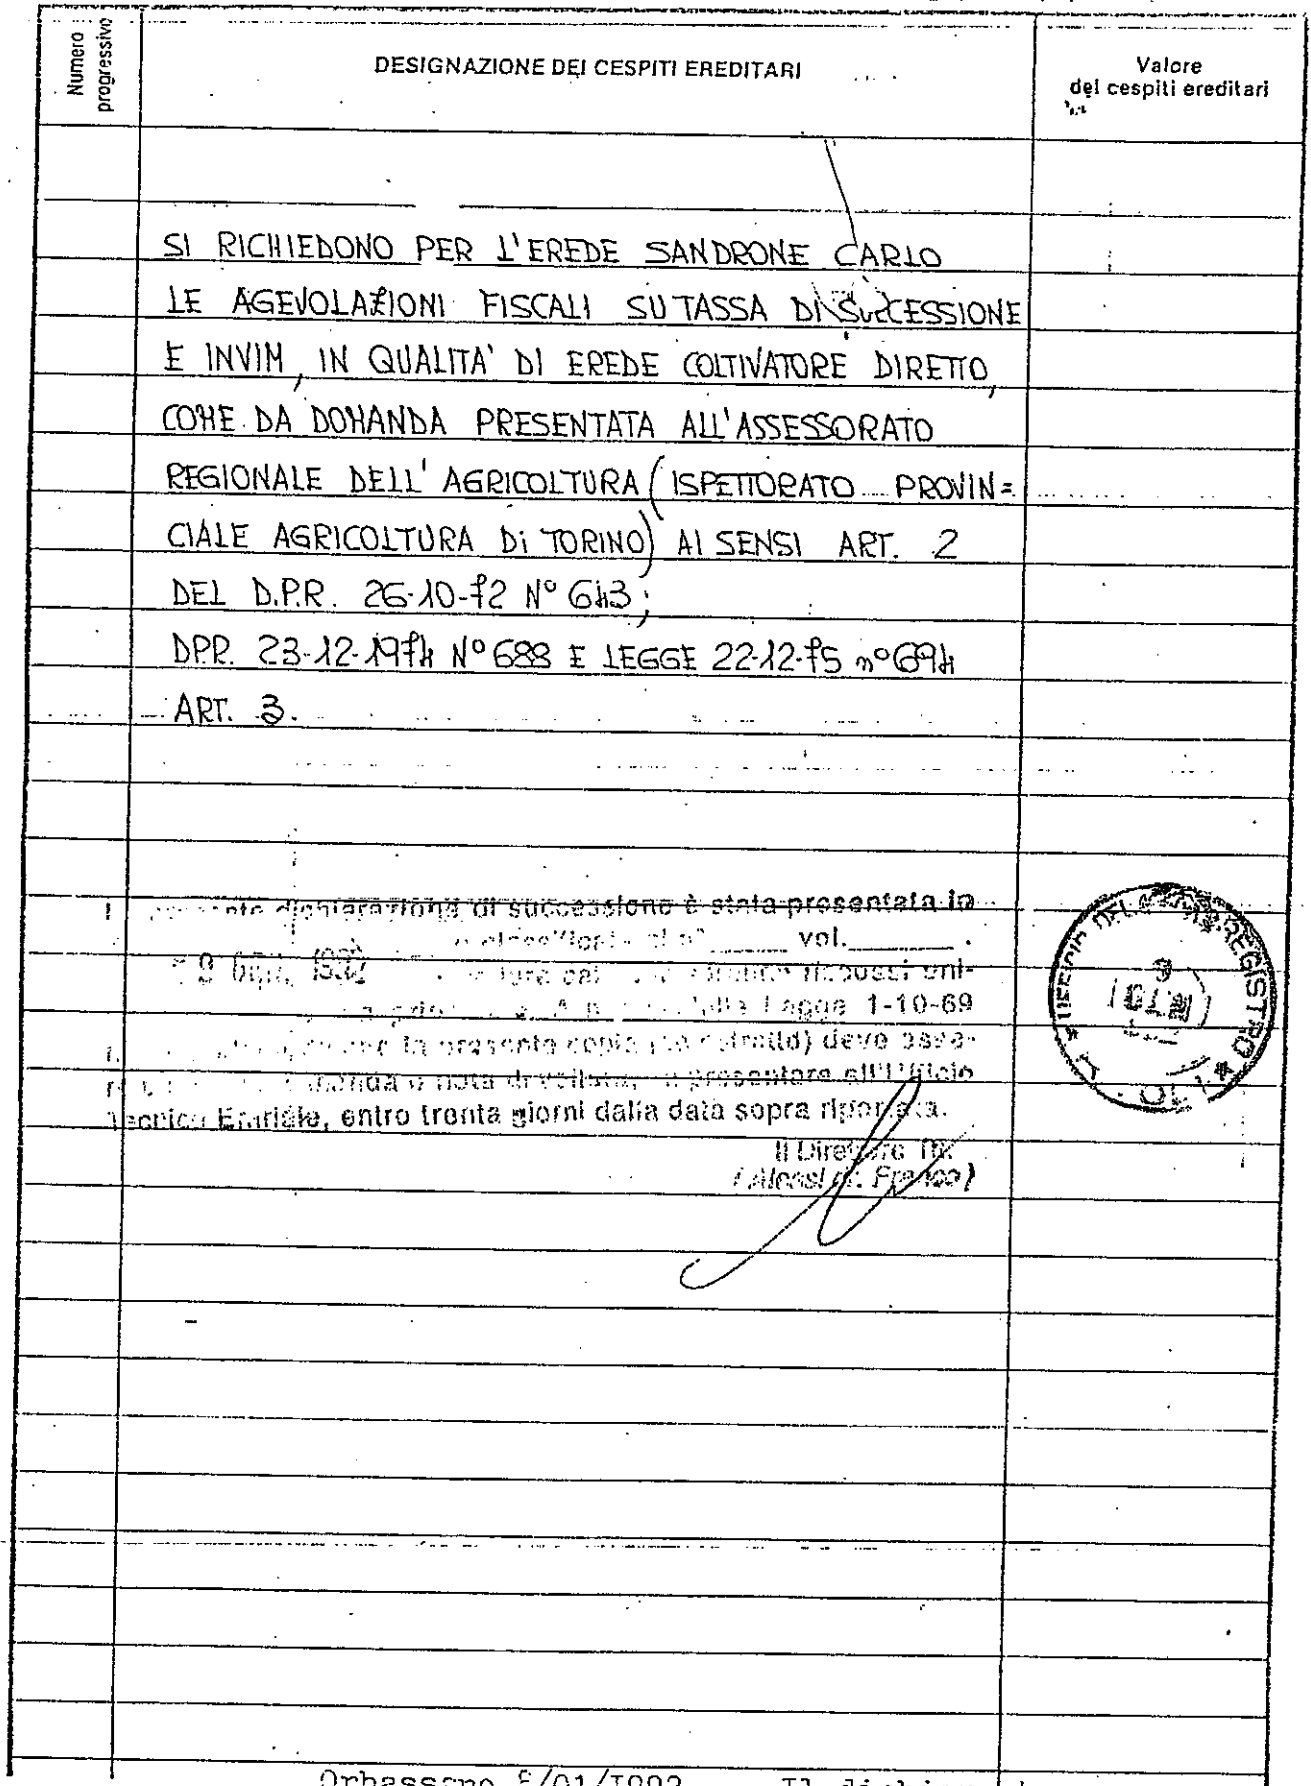 Numero
progressivo
DESIGNAZIONE DEI CESPITI EREDITARI
Valore
dei cespiti ereditari
SI RICHIEDONO PER L'EREDE SANDRONE CARLO
LE AGEVOLAZIONI FISCALI SU TASSA DI SUCCESSIONE
E INVIM, IN QUALITA' DI EREDE COLTIVATORE DIRETTO,
COME DA DOMANDA PRESENTATA ALL'ASSESSORATO
REGIONALE DELL'AGRICOLTURA (ISPETTORATO PROVIN=
CIALE AGRICOLTURA Di TORINO) AI SENSI ART. 2
DEL D.P.R. 26-10-72 N° 643;
DPR. 23-12-1974 N° 688 E LEGGE 22-12-75 n° 694
ART. 3.
dichiarazione di successione è stata presentata in
vol.
Legge 1-10-69
che la presente copia deve esse-
presentare all'Ufficio
Tecnico Erariale, entro trenta giorni dalla data sopra riportata.
Il Direttore
Franco)
UFFICIO DEL REGISTRO
Orbassano
Il